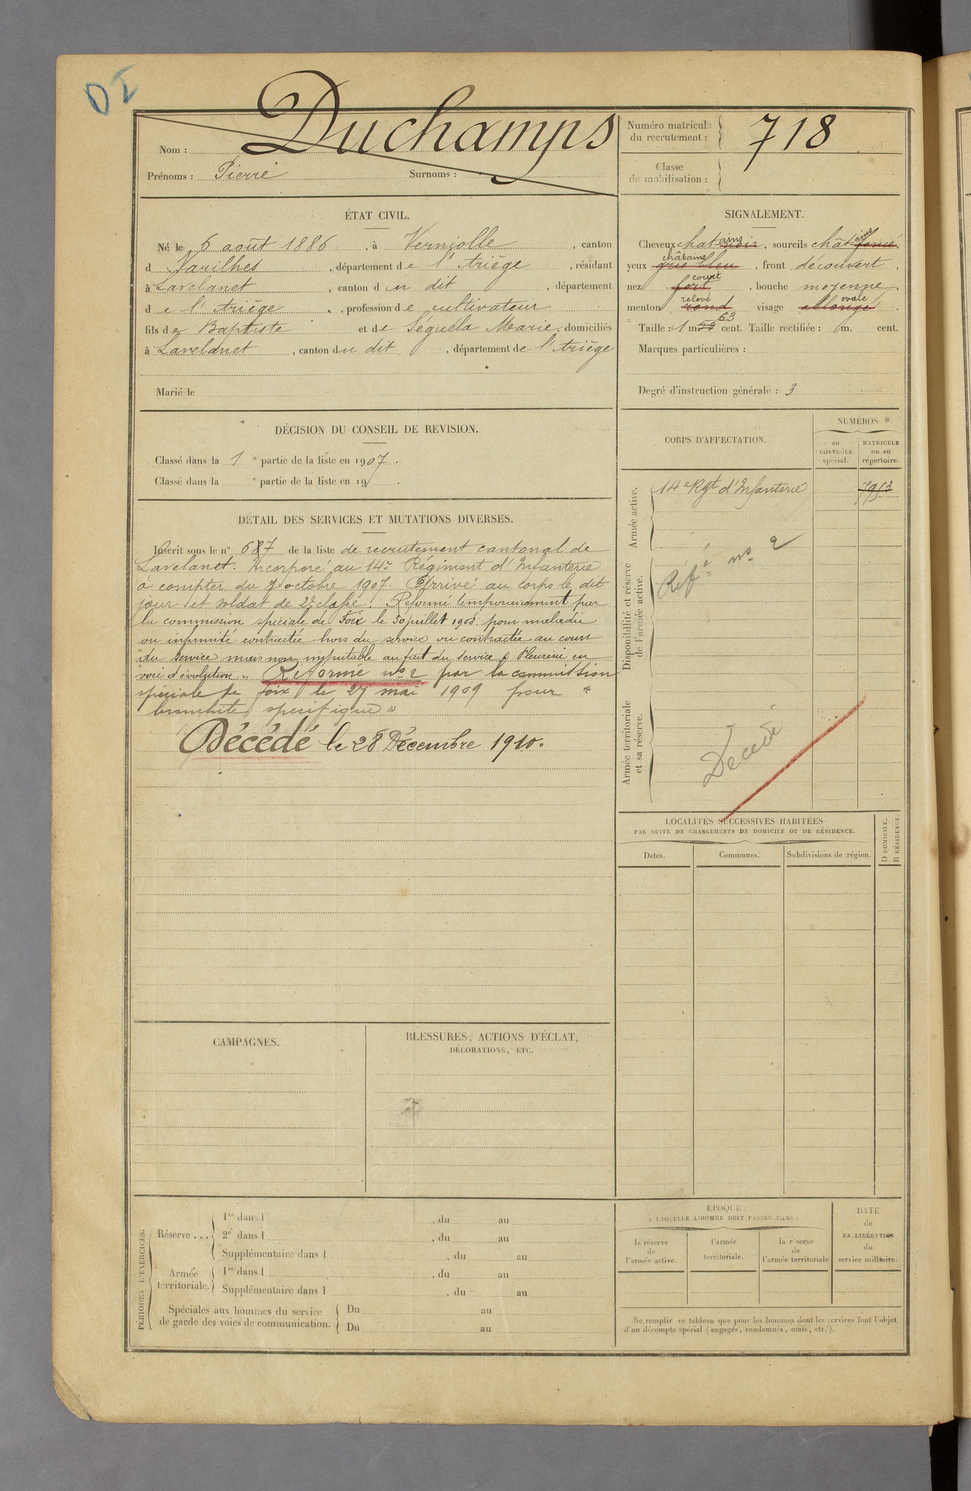 OI
Nom : Duchamps
Prénoms : Pierre Surnoms :
Numéro matricule du recrutement : 718
Classe de mobilisation :
ÉTAT CIVIL.
Né le 6 août 1886, à Verniolle, canton
d Varilhes, département de l'Ariège, résidant
à Lavelanet, canton du dit, département
de l'Ariège, profession de cultivateur
fils de Baptiste et de Séguéla Marie, domiciliés
à Lavelanet, canton du dit, département de l'Ariège
Marié le
SIGNALEMENT.
Cheveux chatains noir, sourcils chatains foncé.
yeux chatains gris bleu, front découvert,
nez court fort, bouche moyenne,
menton relevé rond visage ovale allongé.
Taille : 1 m 63 cent. Taille rectifiée : m. cent.
Marques particulières :
Degré d'instruction générale : 3
DÉCISION DU CONSEIL DE REVISION.
Classé dans la 1e partie de la liste en 1907.
Classé dans la e partie de la liste en 19 .
CORPS D'AFFECTATION.
NUMÉROS
au CONTRÔLE spécial.
MATRICULE ou au répertoire.
Armée active.
14e Rgt d'Infanterie
Disponibilité et réserve de l'armée active.
Réfé no 2
Armée territoriale et sa réserve.
Décédé
DÉTAIL DES SERVICES ET MUTATIONS DIVERSES.
Inscrit sous le n° 687 de la liste de recrutement cantonal de
Lavelanet. Incorporé au 14e Régiment d'Infanterie
à compter du 7 octobre 1907. Arrivé au corps le dit
jour et soldat de 2e classe. Réformé temporairement par
la commission spéciale de Foix le 30 juillet 1908 pour maladie
ou infirmité contractée hors du service ou contractée au cours
du service mais non imputable au fait du service « Pleurésie en
voie d'évolution ». Réformé no 2 par la commission
spéciale de Foix le 27 mai 1909 pour «
bronchite spécifique »
Décédé le 28 Décembre 1910.
LOCALITÉS SUCCESSIVES HABITÉES
PAR SUITE DE CHANGEMENTS DE DOMICILE OU DE RÉSIDENCE.
Dates. Communes. Subdivisions de région. D DOMICILE. R RÉSIDENCE.
CAMPAGNES.
BLESSURES, ACTIONS D'ÉCLAT,
DÉCORATIONS, ETC.
PÉRIODES D'EXERCICES.
Réserve ...
1re dans l , du au
2e dans l , du au
Supplémentaire dans l , du au
Armée territoriale.
1re dans l , du au
Supplémentaire dans l , du au
Spéciales aux hommes du service
de garde des voies de communication.
Du au
Du au
ÉPOQUE
À LAQUELLE L'HOMME DOIT PASSER DANS :
la réserve de l'armée active.
l'armée territoriale.
la réserve de l'armée territoriale
DATE de LA LIBÉRATION du service militaire.
Ne remplir ce tableau que pour les hommes dont les services font l'objet
d'un décompte spécial (engagés, condamnés, omis, etc.).